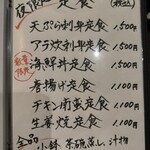 夜限定 定食 (税込)
天ぷら刺身定食 1,500円
アラ汁刺身定食 1,500円
数量限定 海鮮丼定食 1,500円
唐揚げ定食 1,100円
チキン南蛮定食 1,100円
生姜焼定食 1,100円
全品 小鉢 茶碗蒸し 汁物